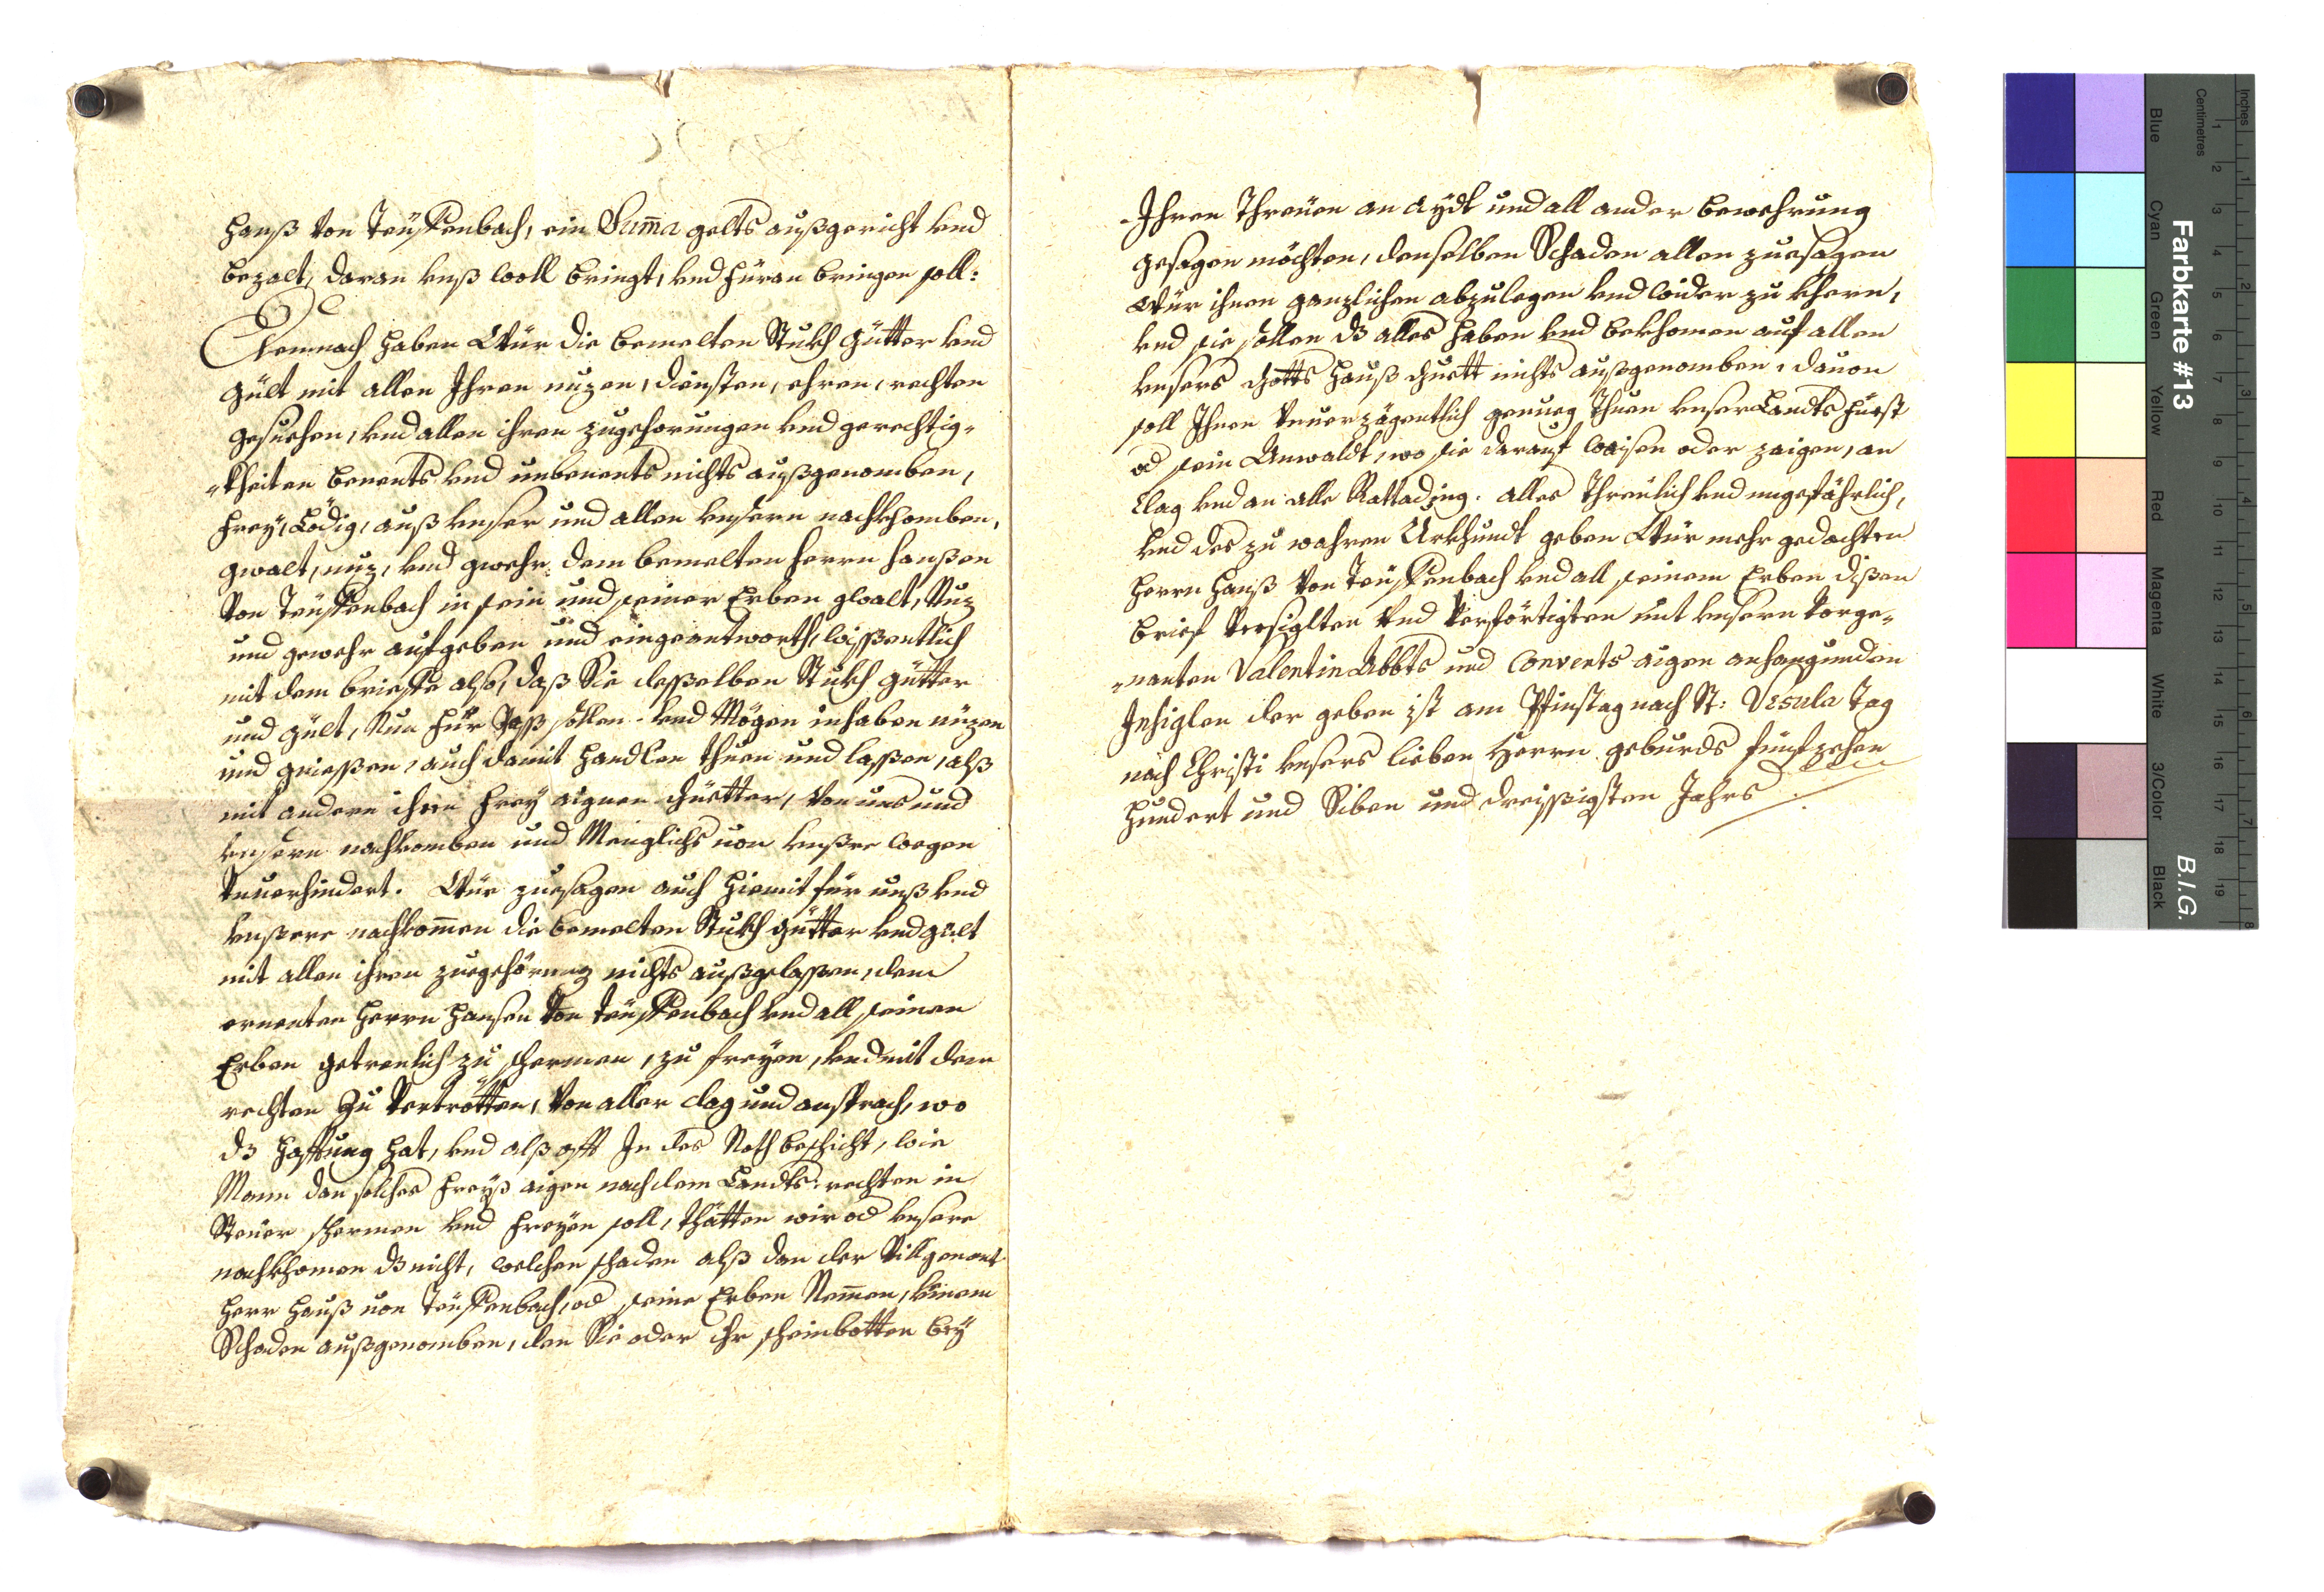 Hanß von Teuffenbach, ein Summa gelts außgericht vnd
bezalt, daran vnß woll bringt, vnd füran bringen soll:
Demnach haben Wür die bemelten Stukh Gütter vnd
gült mit allen Ihren nuzen, diensten, ehren, rechten
gesuechen, vnd allen ihren zugehorungen vnd gerechtig-
-kheiten benents vnd unbenents nichts außgenomben,
frey, Lödig, auß vnser und allen vnsern nachkhomben,
gwalt, nuz, vnd gwehr dem bemelten Herrn Hanßen
Von Teuffenbach in sein und seiner Erben gwalt, Nuz
und gewehr aufgeben und eingeantworth, wissentlich
mit dem brieffe also, daß Sie desselben Stukh gütter
und gült, Nun für Jass sollen vnd Mögen inhaben nuzen
und griessen, auch damit handlen thuen und lassen, alß
mit andern ihren frey aignen Güetter, von uns und
vnsern nachkomben und Meniglichs von vnßer wegen
Vnuerhindert. Wür zuesagen auch hiemit für unß vnd
vnßere nachkomen die bemelten Stukh gütter vnd gült
mit allen ihren zuegehörung nichts außgelassen, dem
ernenten Herrn Hansen Von Teuffenbach vnd all seinen
Erben getreulich zu schermen, zu freyen, vnd mit dem
rechten Zu Vertrötten, Von aller clag und ansprach, wo
dz hafftung hat, vnd alß offt In des Noth beschicht, wie
Mann dan solches freyß aigen nach dem Landts rechten in
Steuer schermen vnd freyen soll, thätten wir od vnsere
nachkhomen dz nicht, welchen schaden alß dan der Vilgenant
Herr Hanß von Teuffenbach, od seine Erben Nemen, keinem
Schaden außgenomben, den Sie oder ihr scheinbotten bey
Ihren Threuen an aydt und all ander bewehrung
gesagen möchten, denselben Schaden allen zuesagen
Wür ihnen ganzlichen abzulegen vnd wider zu khern,
vnd sie sollen dz alles haben vnd bekhomen auf allen
vnsers Gotts Hauß Guett nichts außgenomben, dauon
soll Ihnen Vnuerzögentlich genueg Thuen vnser Landts Fürst
od sein Anwaldt, wo sie darauf waisen oder zaigen, an
Clag vnd an alle Rattading. alles Threulich vnd ungefährlich,
vnd des zu wahren Urkhundt geben Wür mehr gedachten
Herrn Hanß Von Teuffenbach vnd all seinem Erben disen
brief Versiglten Vnd Verförtigten mit vnsern Vorge-
-nanten Valentin Abbts und Convents aigen anhangunden
Insiglen der geben ist am Pfinstag nach St: Vrsula Tag
nach Christi vnsers lieben Herrn geburds fünfzehen
Hundert und Siben und dreissigsten Jahrs
Farbkarte #13
B.I.G.
Inches
Centimetres
Blue
Cyan
Green
Yellow
Red
Magenta
White
3/Color
Black
1 2 3 4 5 6 7 8 9 10 11 12 13 14 15 16 17 18 19
1 2 3 4 5 6 7 8